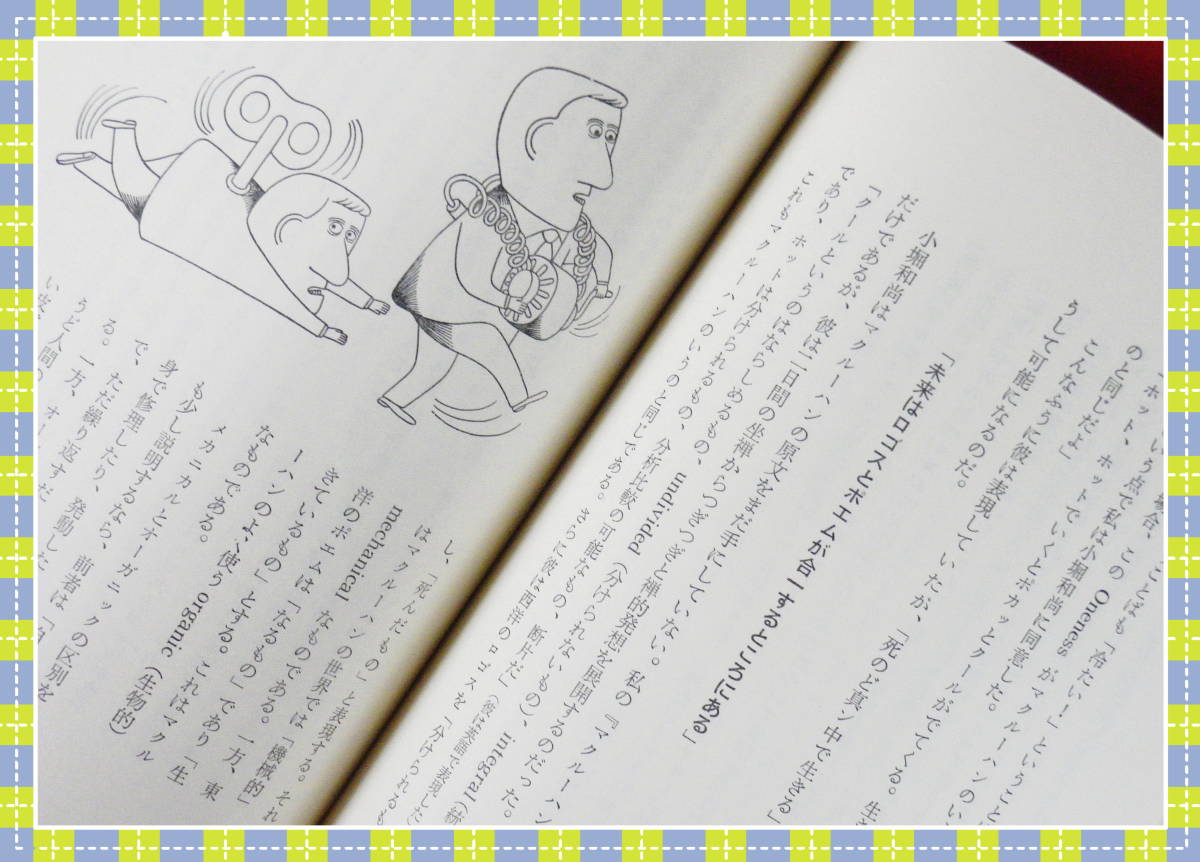 「ホット、という点で 場合、ことばも「冷たい！」ということ
のと同じだよ」 この Oneness がマクルーハンのい
こんなふうに彼は表現していたが、「死のど真ン中で生きる」
うして可能になるのだ。
「未来はロゴスとポエムが合一するところにある」
小堀和尚はマクルーハンの原文をまだ手にしていない。私の『マクルーハン
だけであるが、彼は二日間の坐禅からつぎつぎと禅的発想を展開するのだった。
「クールというのはならしめるもの、undivided（分けられないもの）、integral（統
であり、ホットは分けられるもの、分析比較の可能なもの、断片だ」（彼は英語で表現した）
これもマクルーハンのいうのと同じである。さらに彼は西洋のロゴスを「分けられるも
し、「死んだもの」と表現する。それ
はマクルーハンの世界では「機械的」
mechanical なものである。一方、東
洋のポエムは「なるもの」であり「生
きているもの」とする。これはマクル
ーハンのよく使う organic（生物的）
なものである。
メカニカル
も少し説明するなら、前者は「自
身で修理したり、発動した
で、メカニカルとオーガニックの区別を
る。ただ繰り返すだ
うど人間の